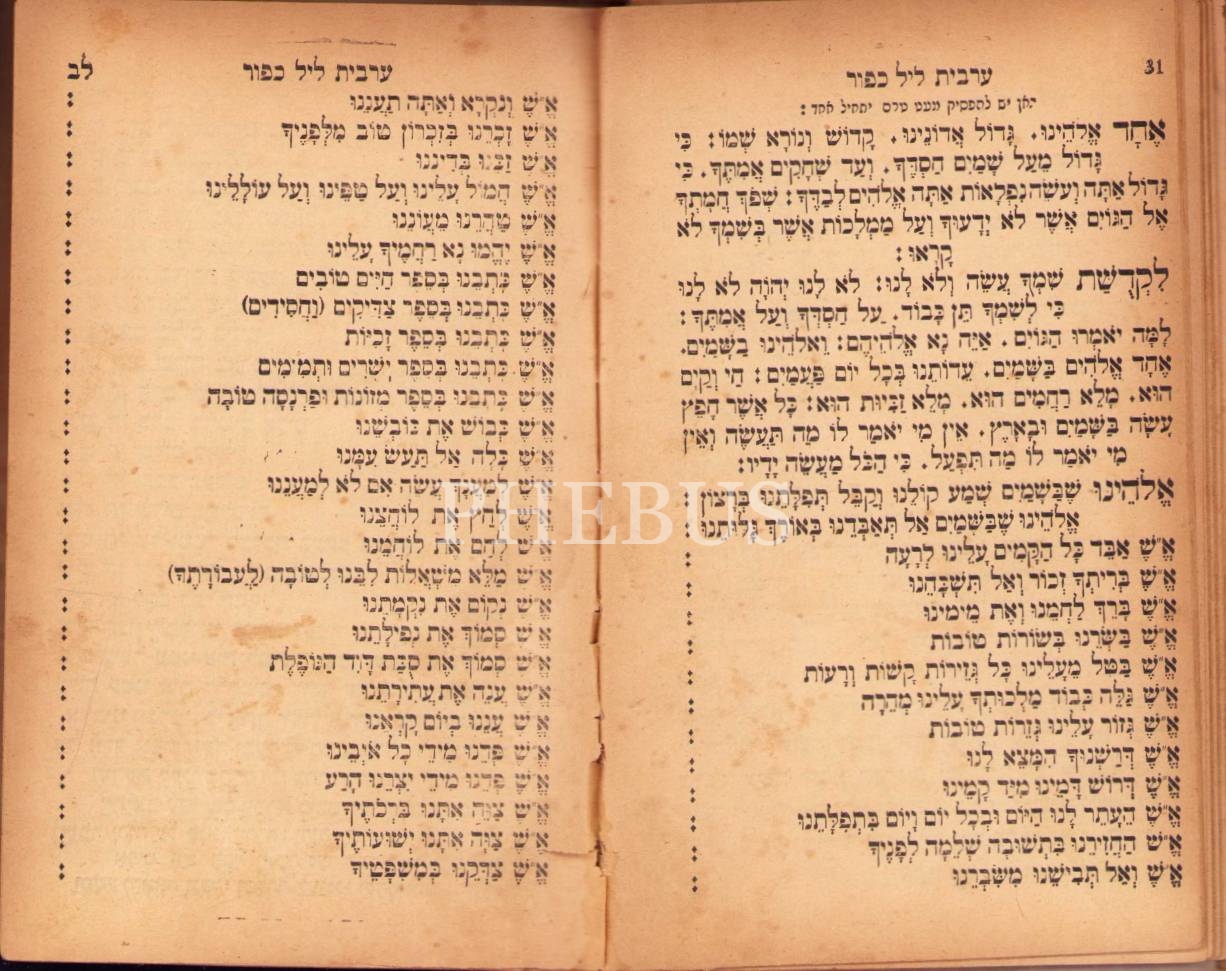 31
ערבית ליל כפור
אֶחָד אֱלֹהֵינוּ. גָּדוֹל אֲדוֹנֵינוּ. קָדוֹשׁ וְנוֹרָא שְׁמוֹ: כִּי
גָּדוֹל מֵעַל שָׁמַיִם חַסְדֶּךָ. וְעַד שְׁחָקִים אֲמִתֶּךָ. כִּי
גָּדוֹל אַתָּה וְעֹשֵׂה נִפְלָאוֹת אַתָּה אֱלֹהִים לְבַדֶּךָ: שְׁפֹךְ חֲמָתְךָ
אֶל הַגּוֹיִם אֲשֶׁר לֹא יְדָעוּךָ וְעַל מַמְלָכוֹת אֲשֶׁר בְּשִׁמְךָ לֹא
קָרָאוּ:
לִקְדֻשַּׁת שִׁמְךָ עֲשֵׂה וְלֹא לָנוּ: לֹא לָנוּ יְהוָֹה לֹא לָנוּ
כִּי לְשִׁמְךָ תֵּן כָּבוֹד. עַל חַסְדְּךָ וְעַל אֲמִתֶּךָ:
לָמָּה יֹאמְרוּ הַגּוֹיִם. אַיֵּה נָא אֱלֹהֵיהֶם: וֵאלֹהֵינוּ בַשָּׁמַיִם.
אֶחָד אֱלֹהִים בַּשָּׁמַיִם. עֵדוֹתֵנוּ בְּכָל יוֹם פַּעֲמַיִם: חַי וְקַיָּם
הוּא. מָלֵא רַחֲמִים הוּא. מָלֵא זַכִּיּוֹת הוּא: כָּל אֲשֶׁר חָפֵץ
עָשָׂה בַּשָּׁמַיִם וּבָאָרֶץ. אֵין מִי יֹאמַר לוֹ מַה תַּעֲשֶׂה וְאֵין
מִי יֹאמַר לוֹ מַה תִּפְעַל. כִּי הַכֹּל מַעֲשֵׂה יָדָיו:
אֱלֹהֵינוּ שֶׁבַּשָּׁמַיִם שְׁמַע קוֹלֵנוּ וְקַבֵּל תְּפִלָּתֵנוּ בְּרָצוֹן:
אֱלֹהֵינוּ שֶׁבַּשָּׁמַיִם אַל תְּאַבְּדֵנוּ בְּאוֹרֶךְ גָּלוּתֵנוּ:
אֱ"שֶׁ אַבֵּד כָּל הַקָּמִים עָלֵינוּ לְרָעָה :
אֱ"שֶׁ בְּרִיתְךָ זְכוֹר וְאַל תִּשְׁכָּחֵנוּ :
אֱ"שֶׁ בָּרֵךְ לַחְמֵנוּ וְאֶת מֵימֵינוּ :
אֱ"שֶׁ בַּשְּׂרֵנוּ בְּשׂוֹרוֹת טוֹבוֹת :
אֱ"שֶׁ בַּטֵּל מֵעָלֵינוּ כָּל גְּזֵירוֹת קָשׁוֹת וְרָעוֹת :
אֱ"שֶׁ גַּלֵּה כְּבוֹד מַלְכוּתְךָ עָלֵינוּ מְהֵרָה :
אֱ"שֶׁ גְּזוֹר עָלֵינוּ גְּזֵרוֹת טוֹבוֹת :
אֱ"שֶׁ דְּרַשְׁנוּךָ הִמָּצֵא לָנוּ :
אֱ"שֶׁ דְּרוֹשׁ דָּמֵינוּ מִיַּד קָמֵינוּ :
אֱ"שֶׁ הֵעָתֵר לָנוּ הַיּוֹם וּבְכָל יוֹם וָיוֹם בִּתְפִלָּתֵנוּ :
אֱ"שֶׁ הַחֲזִירֵנוּ בִּתְשׁוּבָה שְׁלֵמָה לְפָנֶיךָ :
אֱ"שֶׁ וְאַל תְּבִישֵׁנוּ מִשִּׂבְרֵנוּ :
ערבית ליל כפור
לב
אֱ"שֶׁ וְנִקְרָא וְאַתָּה תַעֲנֵנוּ :
אֱ"שֶׁ זָכְרֵנוּ בְּזִכְרוֹן טוֹב מִלְּפָנֶיךָ :
אֱ"שֶׁ זַכֵּנוּ בְּדִינֵנוּ :
אֱ"שֶׁ חֲמוֹל עָלֵינוּ וְעַל טַפֵּינוּ וְעַל עוֹלָלֵינוּ :
אֱ"שֶׁ טַהֲרֵנוּ מֵעֲוֹנֵנוּ :
אֱ"שֶׁ יֶהֱמוּ נָא רַחֲמֶיךָ עָלֵינוּ :
אֱ"שֶׁ כָּתְבֵנוּ בְּסֵפֶר חַיִּים טוֹבִים :
אֱ"שֶׁ כָּתְבֵנוּ בְּסֵפֶר צַדִּיקִים (וַחֲסִידִים) :
אֱ"שֶׁ כָּתְבֵנוּ בְּסֵפֶר זָכִיּוֹת :
אֱ"שֶׁ כָּתְבֵנוּ בְּסֵפֶר יְשָׁרִים וּתְמִימִים :
אֱ"שֶׁ כָּתְבֵנוּ בְּסֵפֶר מְזוֹנוֹת וּפַרְנָסָה טוֹבָה :
אֱ"שֶׁ כְּבוֹשׁ אֶת כּוֹבְשֵׁנוּ :
אֱ"שֶׁ כָּלָה אַל תַּעַשׂ עִמָּנוּ :
אֱ"שֶׁ לְמַעַנְךָ עֲשֵׂה אִם לֹא לְמַעֲנֵנוּ :
אֱ"שֶׁ לְחַץ אֶת לוֹחֲצֵנוּ :
אֱ"שֶׁ לְחַם אֶת לוֹחֲמֵנוּ :
אֱ"שֶׁ מַלֵּא מִשְׁאֲלוֹת לִבֵּנוּ לְטוֹבָה (לַעֲבוֹדָתֶךָ) :
אֱ"שֶׁ נְקוֹם אֶת נִקְמָתֵנוּ :
אֱ"שֶׁ סְמוֹךְ אֶת נְפִילָתֵנוּ :
אֱ"שֶׁ סְמוֹךְ אֶת סֻכַּת דָּוִד הַנּוֹפֶלֶת :
אֱ"שֶׁ עֲנֵה אֶת עֲתִירָתֵנוּ :
אֱ"שֶׁ עֲנֵנוּ בְיוֹם קָרְאֵנוּ :
אֱ"שֶׁ פְּדֵנוּ מִידֵי כָל אֹיְבֵינוּ :
אֱ"שֶׁ פְּדֵנוּ מִידֵי יִצְרֵנוּ הָרַע :
אֱ"שֶׁ צַוֵּה אִתָּנוּ בִּרְכֹתֶיךָ :
אֱ"שֶׁ צַוֵּה אִתָּנוּ יְשׁוּעוֹתֶיךָ :
אֱ"שֶׁ צַדְּקֵנוּ בְּמִשְׁפָּטֶיךָ :
PHEBUS